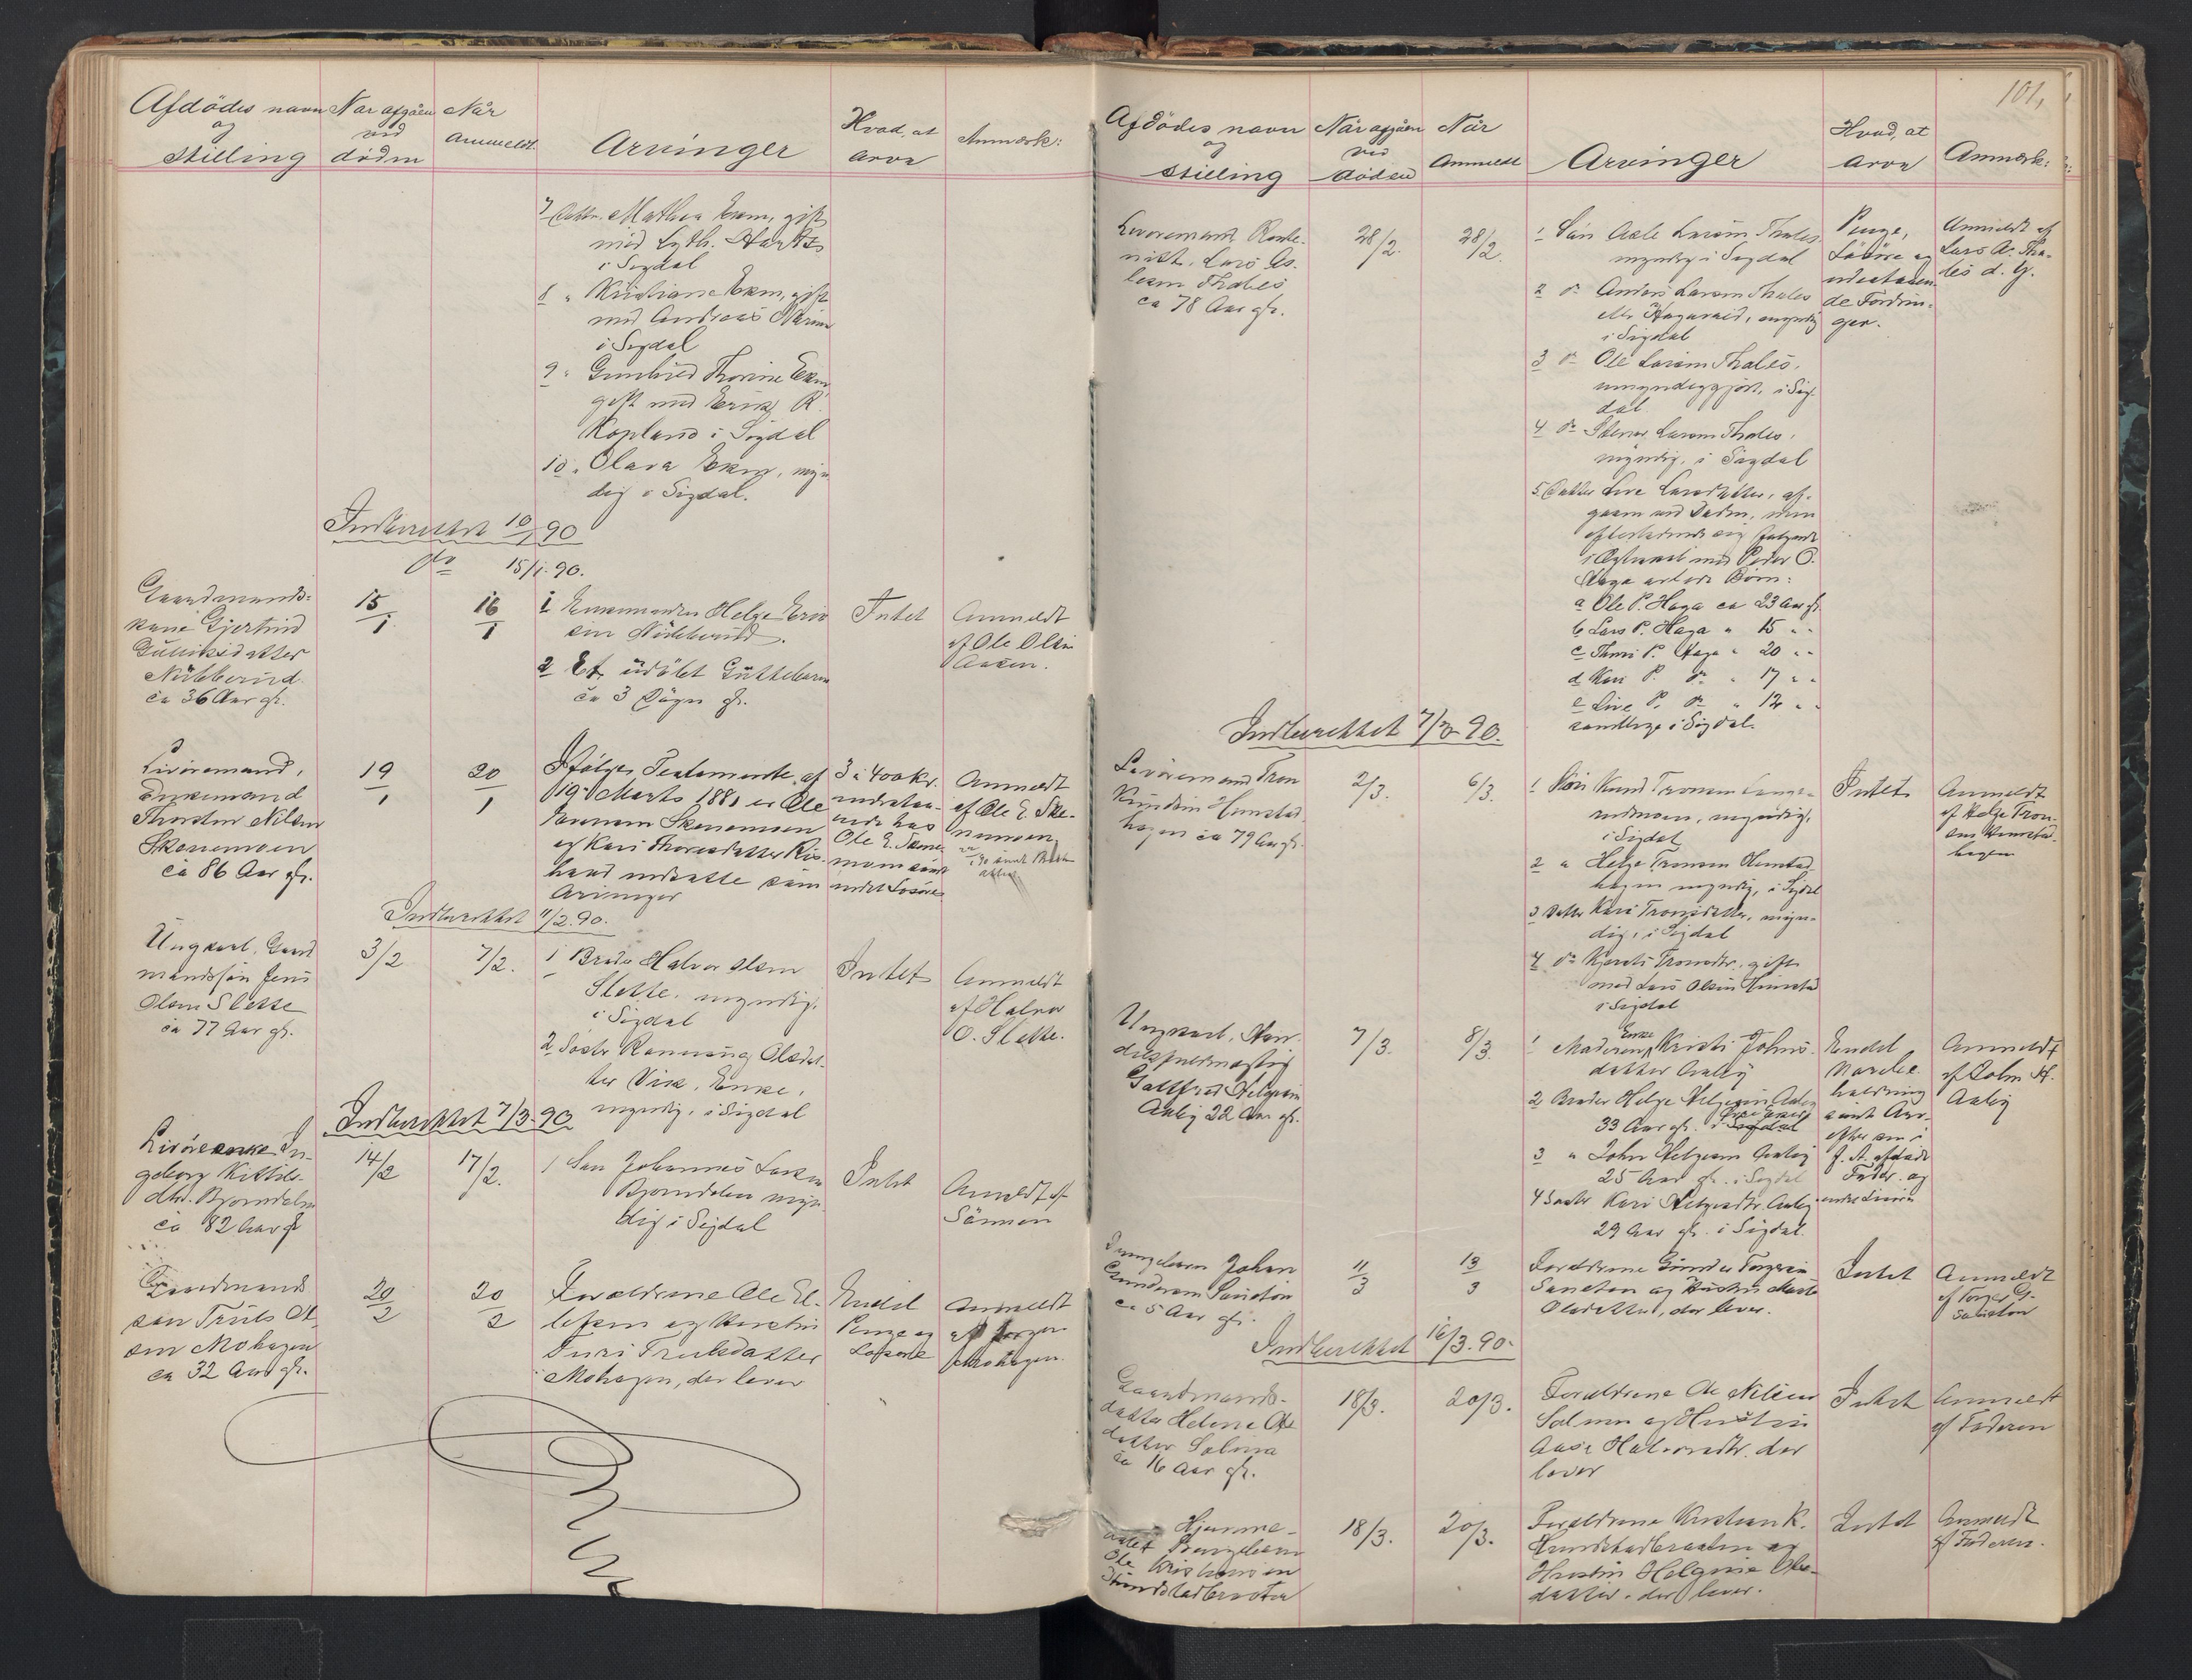 Afdödes navn
og
stilling
Når afgåen
ved
döden
Når
anmeldt
Arvinger
Hvad, at
arve
Anmærk:
7 Datter Mathea Ekern, gift
med
i Sigdal
8 " Kristiane Ekern, gift
med Andreas
i Sigdal
9 " Gunhild Thorine Ekern
gift med Erik R.
Kopland i Sigdal
10 " Olava Ekern, myn
dig i Sigdal.
Indberettet 10/1 90
do 15/1. 90.
Gaardmands-
kone Gjertrud
Gulliksdatter
Nubberud
ca 36 Aar gl.
15/1
16/1
1 Enkemanden Helge Erik
sen Nubberud.
2 Et udöbt Guttebarn
ca 3 Dögn gl.
Intet
Anmeldt
af Ole Olsen
Aasen.
Livöremand,
Enkemand
Thorsten Nilsen
Skarremoen
ca 86 Aar gl.
19/1
20/1
Ifölge Testamente af
19de Marts 1881 er Ole
Evensen Skarremoen
og Kari Thoresdatter
haand indsatte som
Arvinger
3 à 400 kr.
indestaa-
ende hos
Ole E.
samt
endel Lösöre
Anmeldt
af Ole E. Ska-
remoen
Indberettet 11/2 90.
Ungkarl, Gaard
mandssön Jens
Olsen Slette
ca 77 Aar gl.
3/2
7/2.
1 Broder Halvor Olsen
Slette, myndig,
i Sigdal
2 Söster Rannaug Olsdat-
ter Vik, Enke,
myndig, i Sigdal
Intet
Anmeldt
af Halvor
O. Slette.
Indberettet 7/3 90.
Livöreenke In-
geborg Kittils-
dtr. Bjorndalen
ca 82 Aar gl
14/2
17/2.
1 Sön Johannes Larsen
Bjorndalen myn
dig i Sigdal
Intet
Anmeldt af
Sönnen
Gaardmands
sön Truls Ol
sen Mohagen
ca 32 Aar gl.
20/2
20/2
Forældrene Ole El-
lefsen og Hustru
Guri Trulsdatter
Mohagen, der lever
Endel
Penge og
Lösöre
Anmeldt
af
Mohagen.
101,
Afdödes navn
og
stilling
Når afgåen
ved
döden
Når
anmeldt
Arvinger
Hvad, at
arve
Anmærk:
Livöremand,
Lars As-
lesen Thales
ca 78 Aar gl.
28/2.
28/2.
1 Sön Asle Larsen Thales
myndig i Sigdal
2 do Anders Larsen Thales
eller, myndig
i Sigdal
3 do Ole Larsen Thales,
umyndiggjort, i Sig-
dal
4 do Stener Larsen Thales,
myndig, i Sigdal
5. Datter Live Larsdatter, af-
gaaen ved Döden, men
efterladende sig fölgende
i Ægteskab med Peder O.
Haga avlede Börn:
a Ole P. Haga ca 23 Aar gl
b Lars P. Haga " 15 " "
c P. Haga " 20 " "
d Kari P. do " 17 " "
e Live P. do " 12 " "
samtlige i Sigdal.
Penge,
Lösöre og
udestaaen-
de Fordrin-
ger.
Anmeldt af
Lars A. Tha-
les d. y.
Indberettet 7/3 90.
Livöremand Tron
Knudsen Hunstad-
hagen ca 79 Aar gl.
2/3.
6/3.
1 Sön Knud Tronsen
myndig,
i Sigdal
2 " Helge Tronsen Hunstad-
hagen myndig, i Sigdal
3 Datter Kari Tronsdatter, myn-
dig, i Sigdal
4 do Kjersti Tronsdtr. gift
med Lars Olsen Hunstad
i Sigdal
Intet
Anmeldt
af Helge Tron-
sen Hunstad-
hagen
Ungkarl, Han-
delsfuldmægtig
Gottfred Helgesen
Aaby 22 Aar gl.
7/3.
8/3.
1 Moderen Enke Kristi Johns-
datter Aaby
2 Broder Helge Helgesen Aaby
33 Aar gl. i Sigdal
3 " John Helgesen Aaby
25 Aar gl. i Sigdal
4 Söster Kari Helgesdtr. Aaby
29 Aar gl. i Sigdal.
Endel
samt Arv
efter sin i
f. A. afdöde
Fader og
Anmeldt
af John H.
Aaby
Pungebarn Johan
Gundersen Sandton
ca 5 Aar gl.
11/3
13/3
Forældrene Gunder Torgersen
Sandton og Hustru Marte
Olsdatter, der lever.
Intet
Anmeldt
af Torger G.
Sandton
Indberettet 16/3. 90.
Gaardmands-
datter Helene Ols
datter Solma
ca 16 Aar gl.
18/3.
20/3.
Forældrene Ole Nilsen
Solmen og Hustru
Aase Halvorsdtr. der
lever
Intet
Anmeldt
af Faderen
Hjemme-
Ole Kristiansen
Hundstadbraaten
18/3.
20/3.
Forældrene Kristian K.
Hundstadbraaten og
Hustru Helgine Ols-
datter, der lever.
Intet
Anmeldt
af Faderen.